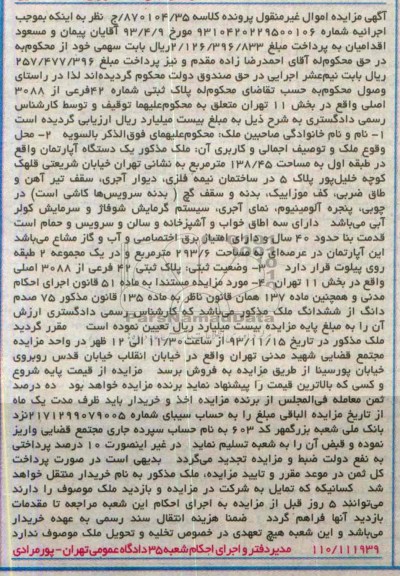 آگهی مزایده اموال غیرمنقول پرونده کلاسه ۸۷۰۱۰۴/۳۵/ج نظر به اینکه بموجب
اجرائیه شماره ۹۳۱۰۴۲۰۲۲۹۵۰۰۱۰۶ مورخ ۹۳/۴/۹ آقایان پیمان و مسعود
اقدامیان به پرداخت مبلغ ۲/۱۲۶/۳۹۶/۸۳۳ریال بابت سهمی خود از محکوم‌به
در حق محکوم‌له آقای احمدرضا زاده مقدم و نیز پرداخت مبلغ ۲۵۷/۴۷۷/۳۹۶
ریال بابت نیم‌عشر اجرایی در حق صندوق دولت محکوم گردیده‌اند لذا در راستای
وصول محکوم‌به حسب تقاضای محکوم‌له پلاک ثبتی شماره ۴۲فرعی از ۳۰۸۸
اصلی واقع در بخش ۱۱ تهران متعلق به محکوم‌علیهما توقیف و توسط کارشناس
رسمی دادگستری به شرح ذیل به مبلغ بیست میلیارد ریال ارزیابی گردیده است
۱- نام و نام خانوادگی صاحبین ملک: محکوم‌علیهمای فوق‌الذکر بالسویه ۲- محل
وقوع ملک و توصیف اجمالی و کاربری آن: ملک مذکور یک دستگاه آپارتمان واقع
در طبقه اول به مساحت ۱۳۸/۴۵ مترمربع به نشانی تهران خیابان شریعتی قلهک
کوچه خلیل‌پور پلاک ۵ در ساختمان نیمه فلزی، دیوار آجری، سقف تیر آهن و
طاق ضربی، کف موزاییک، بدنه و سقف گچ ( بدنه سرویس‌ها کاشی است) در
چوبی، پنجره آلومینیوم، نمای آجری، سیستم گرمایش شوفاژ و سرمایش کولر
آبی می‌باشد دارای سه اطاق خواب و آشپزخانه و سالن و سرویس و حمام است
قدمت بنا حدود ۴۰ سال و دارای امتیاز برق اختصاصی و آب و گاز مشاع می‌باشد
این آپارتمان در عرصه‌ای به مساحت ۲۹۳/۶ مترمربع و در یک مجموعه ۲ طبقه
روی پیلوت قرار دارد ۳- وضعیت ثبتی: پلاک ثبتی ۴۲ فرعی از ۳۰۸۸ اصلی
واقع در بخش ۱۱ تهران ۴- مورد مزایده مستندا به ماده ۵۱ قانون اجرای احکام
مدنی و همچنین ماده ۱۳۷ همان قانون ناظر به ماده ۱۳۵ قانون مذکور ۷۵ صدم
دانگ از ششدانگ ملک مذکور می‌باشد که کارشناس رسمی دادگستری ارزش
آن را به مبلغ پایه مزایده بیست میلیارد ریال تعیین نموده است مقرر گردید
ملک مذکور در تاریخ ۹۳/۱۱/۱۵ از ساعت ۱۱/۳۰ الی ۱۲ ظهر در واحد مزایده
مجتمع قضایی شهید مدنی تهران واقع در خیابان انقلاب خیابان قدس روبروی
خیابان پورسینا از طریق مزایده به فروش برسد مزایده از قیمت پایه شروع
و کسی که بالاترین قیمت را پیشنهاد نماید برنده مزایده خواهد بود ده درصد
ثمن معامله فی‌المجلس از برنده مزایده اخذ و خریدار باید ظرف مدت یک ماه
از تاریخ مزایده الباقی مبلغ را به حساب سیبای شماره ۲۱۷۱۲۹۹۰۷۹۰۰۵نزد
بانک ملی شعبه بزرگمهر کد ۶۰۳ به نام حساب سپرده جاری مجتمع قضایی واریز
نموده و قبض آن را به شعبه تسلیم نماید در غیر اینصورت ۱۰ درصد پرداختی
به نفع دولت ضبط و مزایده تجدید می‌گردد بدیهی است در صورت پرداخت
کل ثمن در موعد مقرر و تایید مزایده، ملک مذکور به نام خریدار منتقل خواهد
شد کسانیکه که تمایل به شرکت در مزایده و بازدید ملک موصوف را دارند
می‌توانند ۵ روز قبل از مزایده به اجرای احکام این شعبه مراجعه تا مقدمات
بازدید آنها فراهم گردد ضمنا هزینه انتقال سند رسمی به عهده خریدار
می‌باشد و این شعبه هیچ تعهدی در خصوص تخلیه و تحویل ملک موصوف ندارد
۱۱۰/۱۱۱۹۳۹ مدیر دفتر و اجرای احکام شعبه ۳۵ دادگاه عمومی تهران - پورمرادی